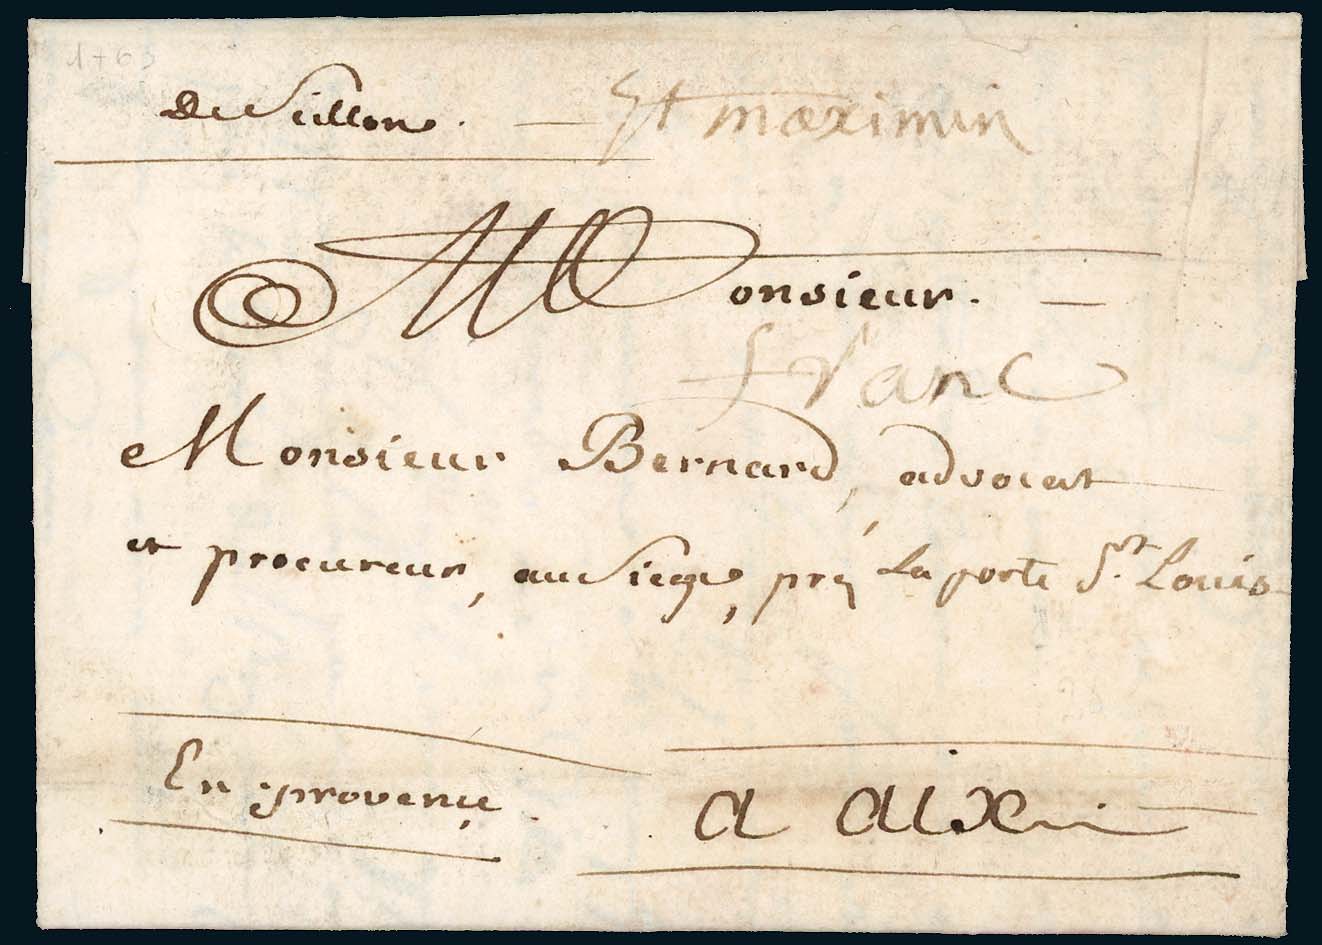 1763
de Seillon. — St maximin
Monsieur. —
franc
Monsieur Bernard, advocat
et procureur, au siege, prez la porte St. Louis
En provence
a aix